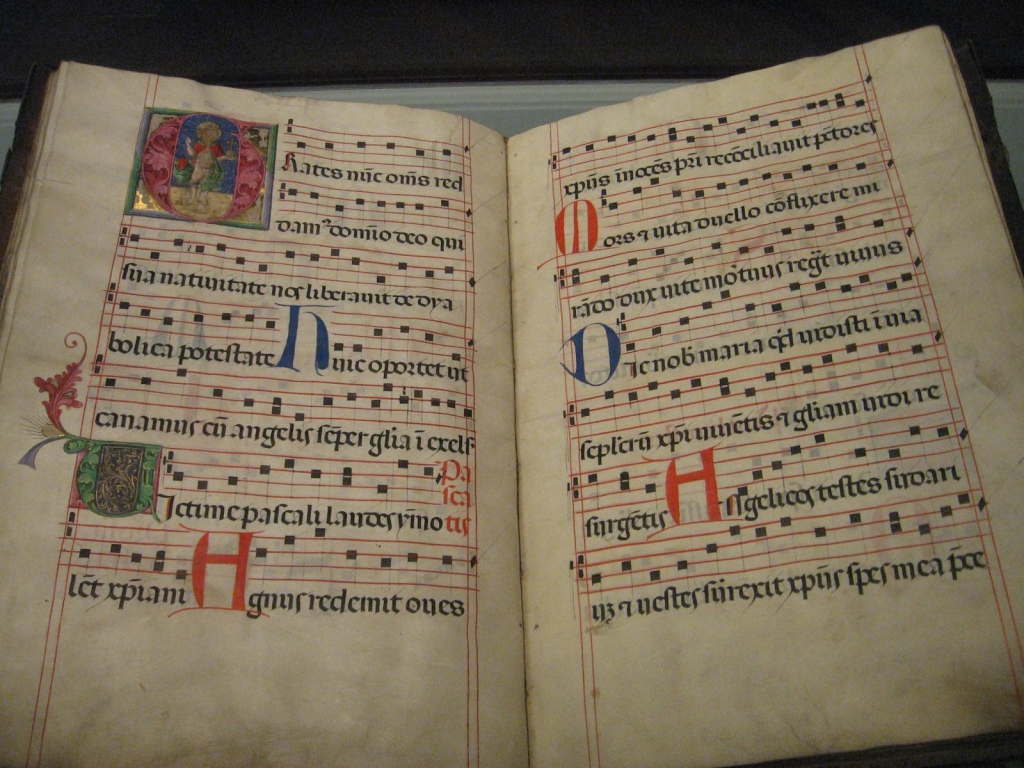 Rates nūc om̄s red
dam᷒ domīo deo qui
sua natiuitate nos liberauit de dya
bolica potestate Huic oportet ut
canamus cū angelis sēper glīa ī excelsis
Uictime pascali laudes ymo
Pa
sca
tis
lēt xp̄iani Agnus redemit oues
xp̄us inocēs pr̄i recōciliauit pctōres
Mors ⁊ uita duello cōflixere mi
rādo dux uite mortuus regt̄ uiuus
Dic nob̄ maria qd̄ uidisti ī uia
sepl̄crū xp̄i uiuētis ⁊ gliam̄ uidi re
surgētis Angelicos testes sudari
uʒ ⁊ uestes surrexit xp̄us spes mea p̄ce